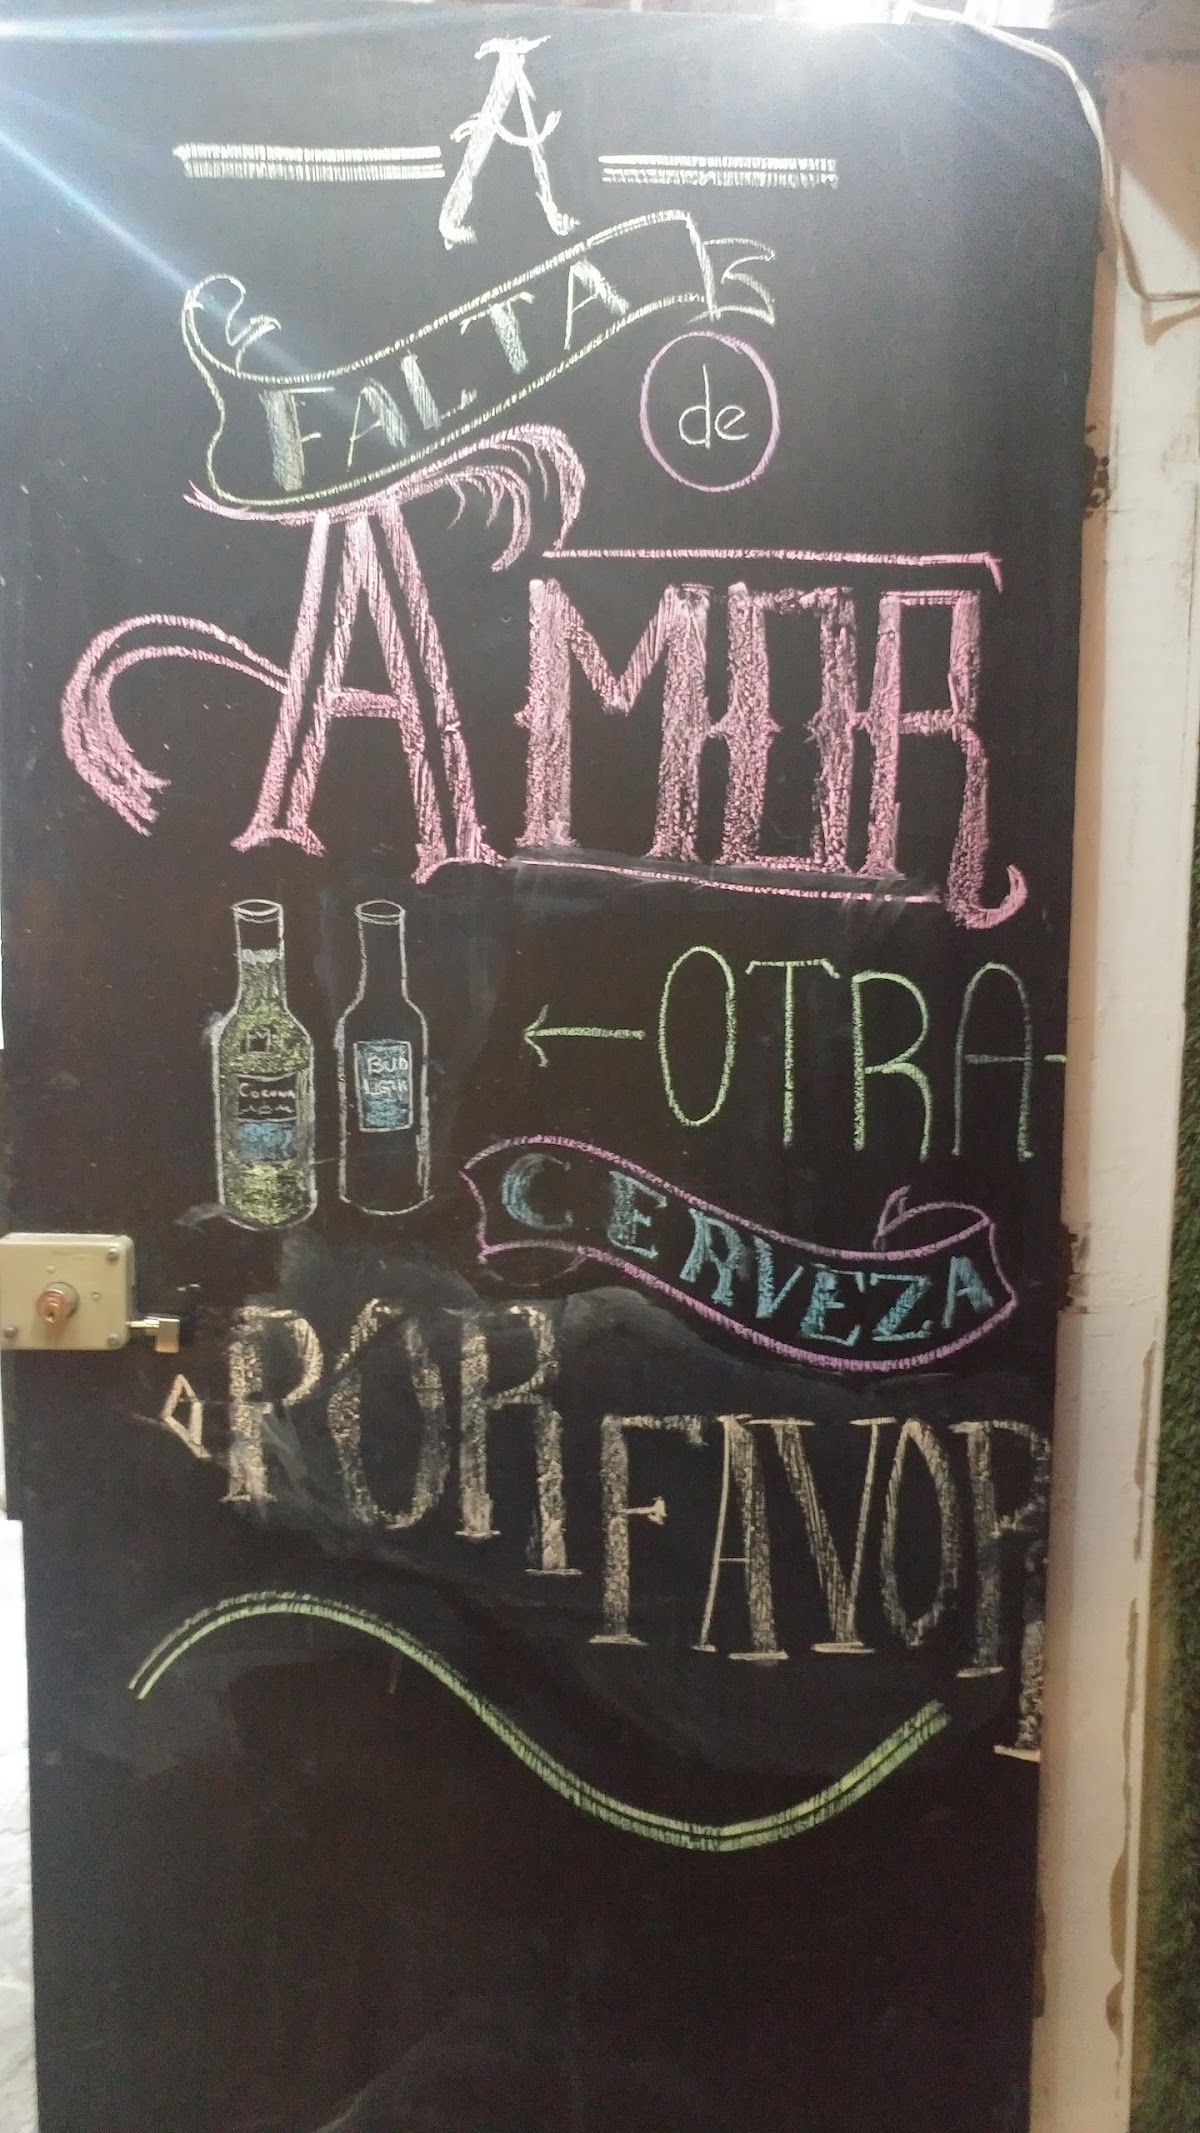 A
FALTA
de
AMOR
OTRA
CORONA
BUD
LIGHT
CERVEZA
POR
FAVOR